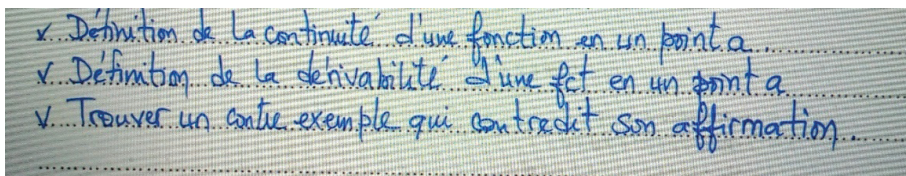 ✓ Définition de la continuité d'une fonction en un point a.
✓ Définition de la dérivabilité d'une fct en un point a
✓ Trouver un contre exemple qui contredit son affirmation.